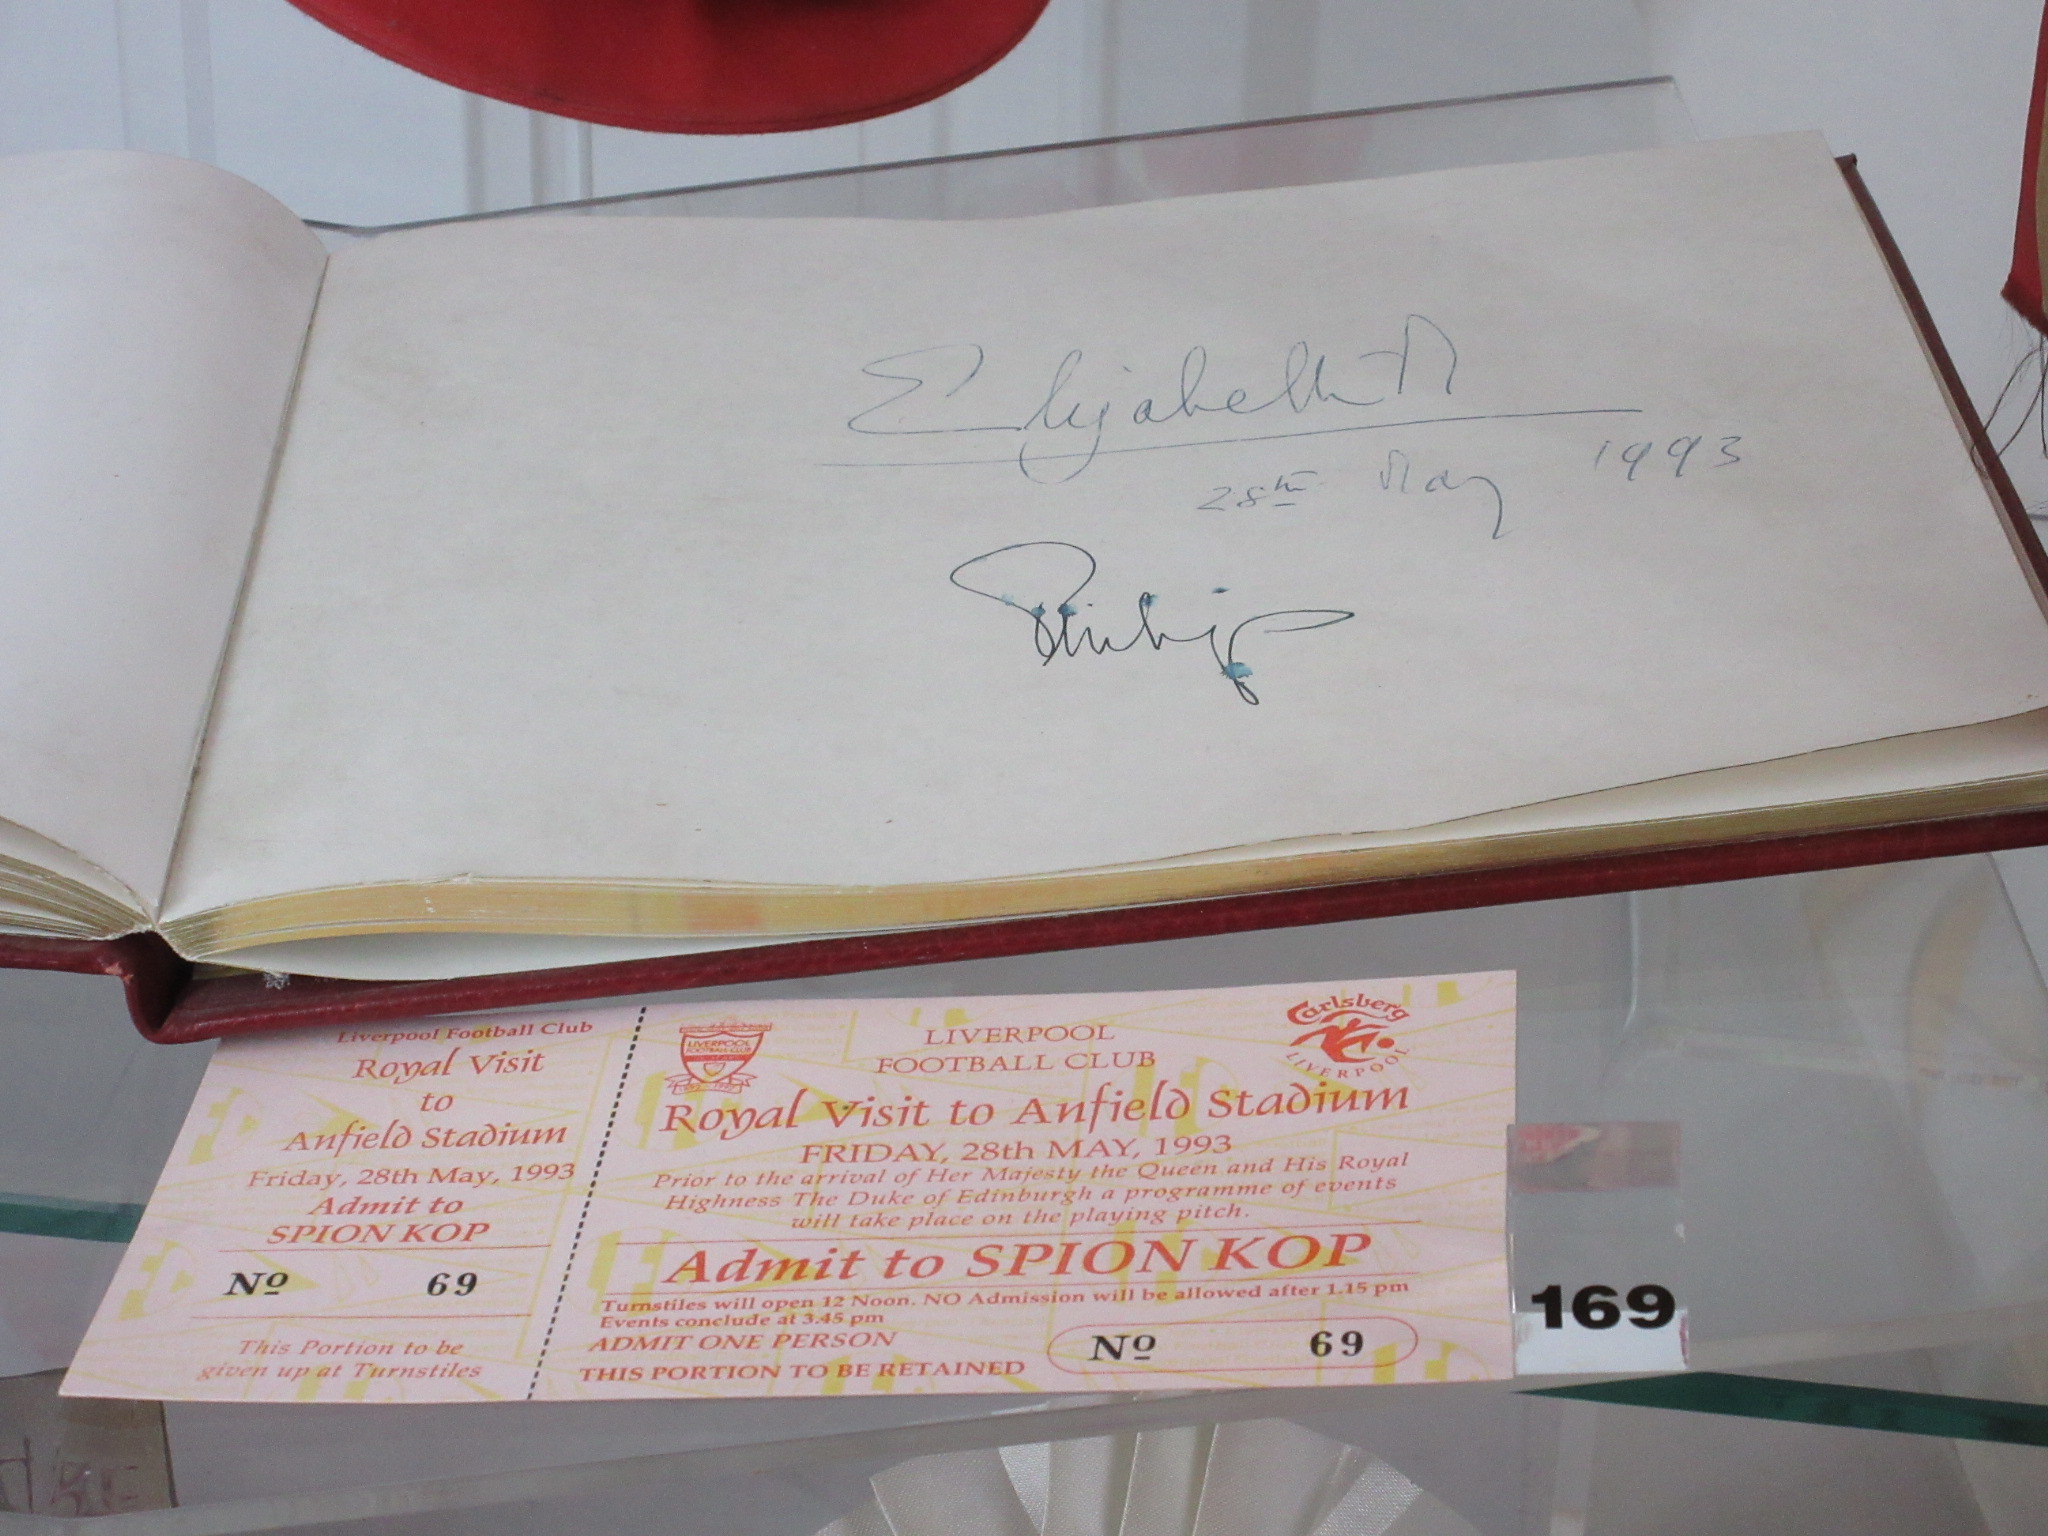 Elizabeth R
28th May 1993
Philip
Liverpool Football Club
Royal Visit
to
Anfield Stadium
Friday, 28th May, 1993
Admit to
SPION KOP
Nº 69
This Portion to be
given up at Turnstiles
LIVERPOOL
FOOTBALL CLUB
LIVERPOOL
FOOTBALL CLUB
Carlsberg
LIVERPOOL
Royal Visit to Anfield Stadium
FRIDAY, 28th MAY, 1993
Prior to the arrival of Her Majesty the Queen and His Royal
Highness The Duke of Edinburgh a programme of events
will take place on the playing pitch.
Admit to SPION KOP
Turnstiles will open 12 Noon. NO Admission will be allowed after 1.15 pm
Events conclude at 3.45 pm
ADMIT ONE PERSON
THIS PORTION TO BE RETAINED
Nº 69
169